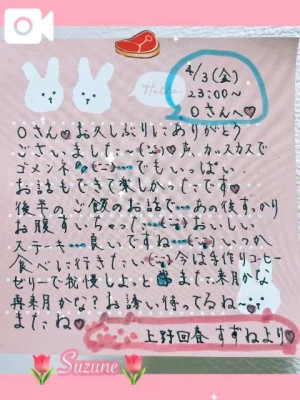 Hello
4/3(金)
23:00〜
Oさんへ♡
Oさん♡お久しぶりにありがとう
ございました〜(;_;)♡声、カッスカスで
ゴメンネ(;_;)…でもいっぱい
お話もできて楽しかったです。
後半のご飯のお話で…あの後すっかり
お腹すいちゃった…(;_;)おいしい
ステーキ…良いですね…(;_;)いつか
食べに行きたい(;_;)今は手作りコーヒー
ゼリーで我慢しよっと また来月かな
再来月かな?お誘い待ってるね〜
またね♡
上野回春 すずねより♡
Suzune